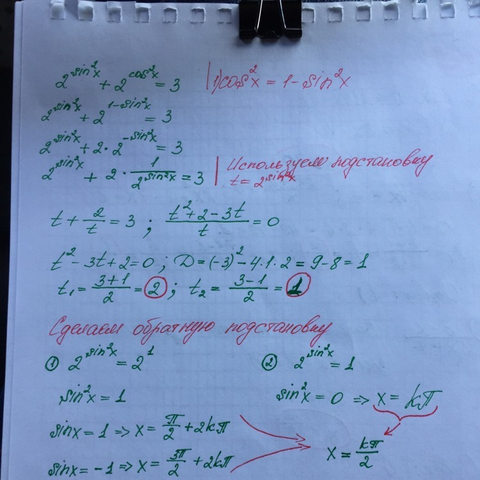 2^{sin²x} + 2^{cos²x} = 3 | 1) cos²x = 1 - sin²x
2^{sin²x} + 2^{1-sin²x} = 3
2^{sin²x} + 2·2^{-sin²x} = 3
2^{sin²x} + 2·\frac{1}{2^{sin²x}} = 3 | Используем подстановку
t = 2^{sin²x}
t + \frac{2}{t} = 3 ; \frac{t² + 2 - 3t}{t} = 0
t² - 3t + 2 = 0 ; D = (-3)² - 4·1·2 = 9 - 8 = 1
t₁ = \frac{3+1}{2} = 2 ; t₂ = \frac{3-1}{2} = 1
Сделаем обратную подстановку
① 2^{sin²x} = 2¹
sin²x = 1
sinx = 1 => x = \frac{π}{2} + 2kπ
sinx = -1 => x = \frac{3π}{2} + 2kπ
② 2^{sin²x} = 1
sin²x = 0 => x = kπ
x = \frac{kπ}{2}